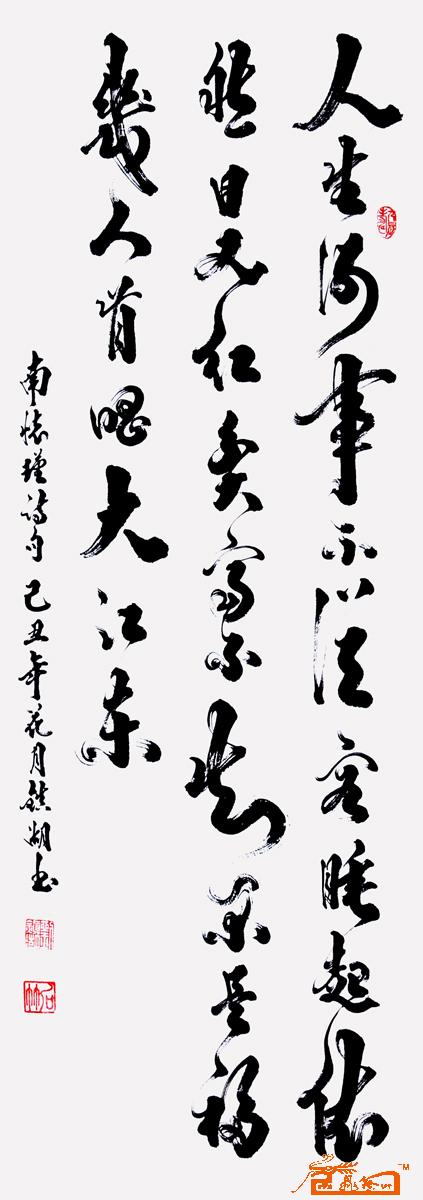 人生何事不從容睡起依
然日又紅貧富不知原是福
幾人肯唱大江東
南懷瑾詩句己丑年花月鎮湖書